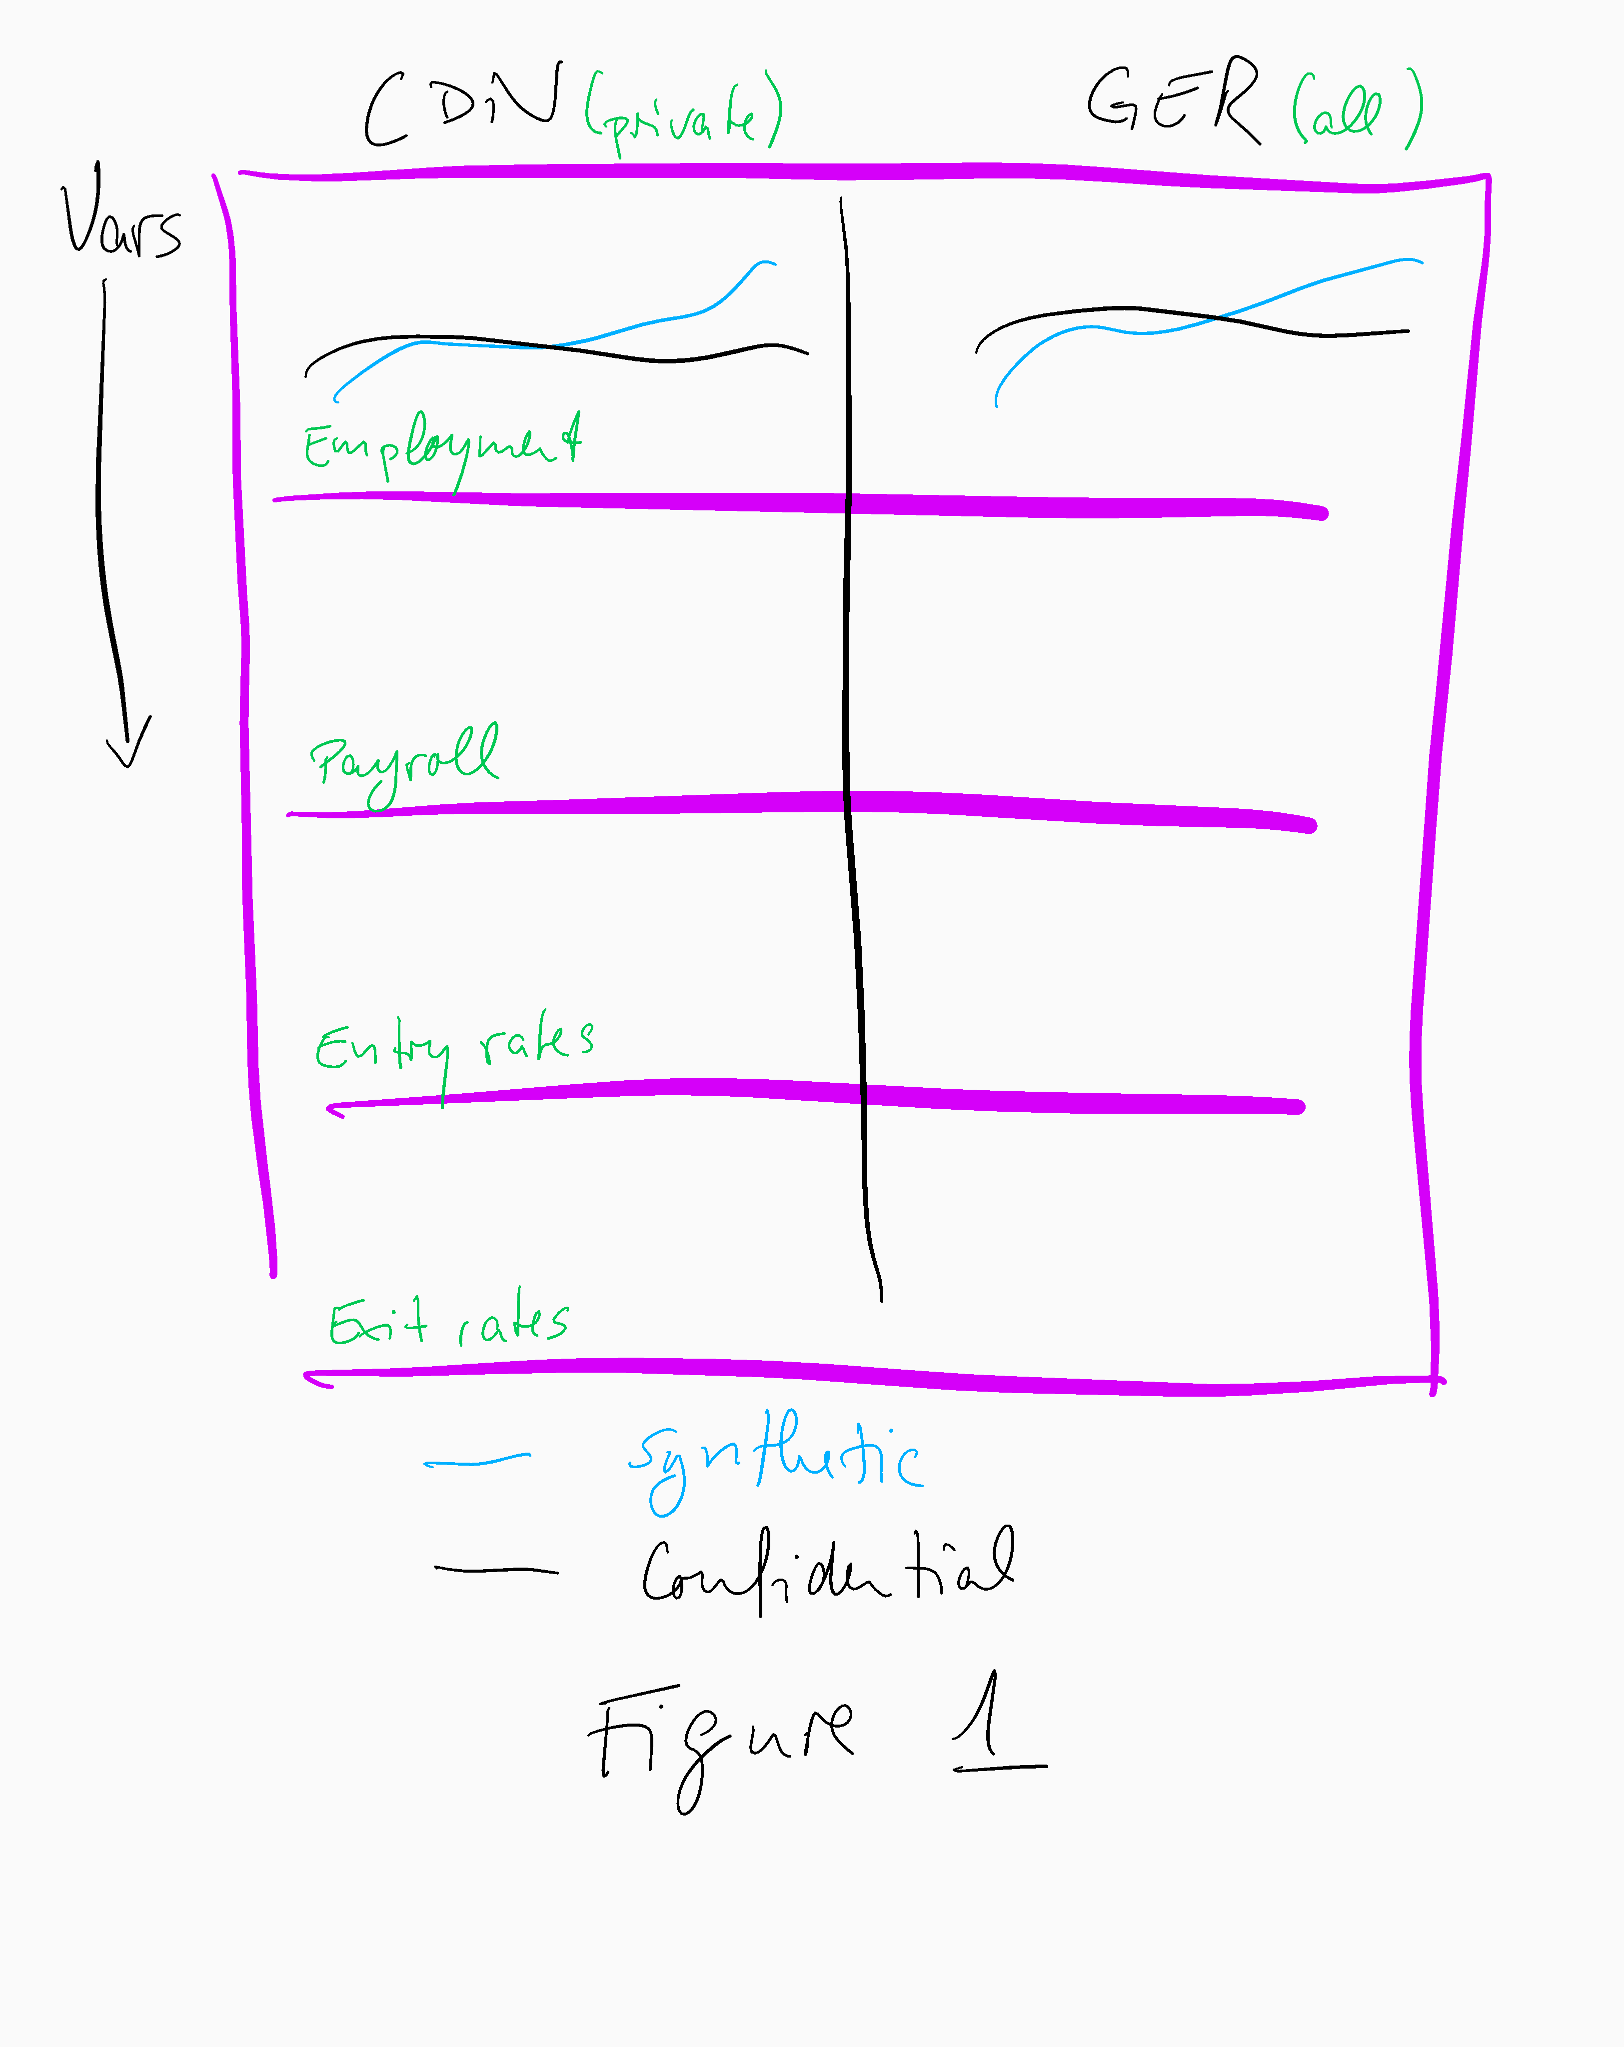 CDN (private) GER (all)
Vars
Employment
Payroll
Entry rates
Exit rates
Synthetic
Confidential
Figure 1